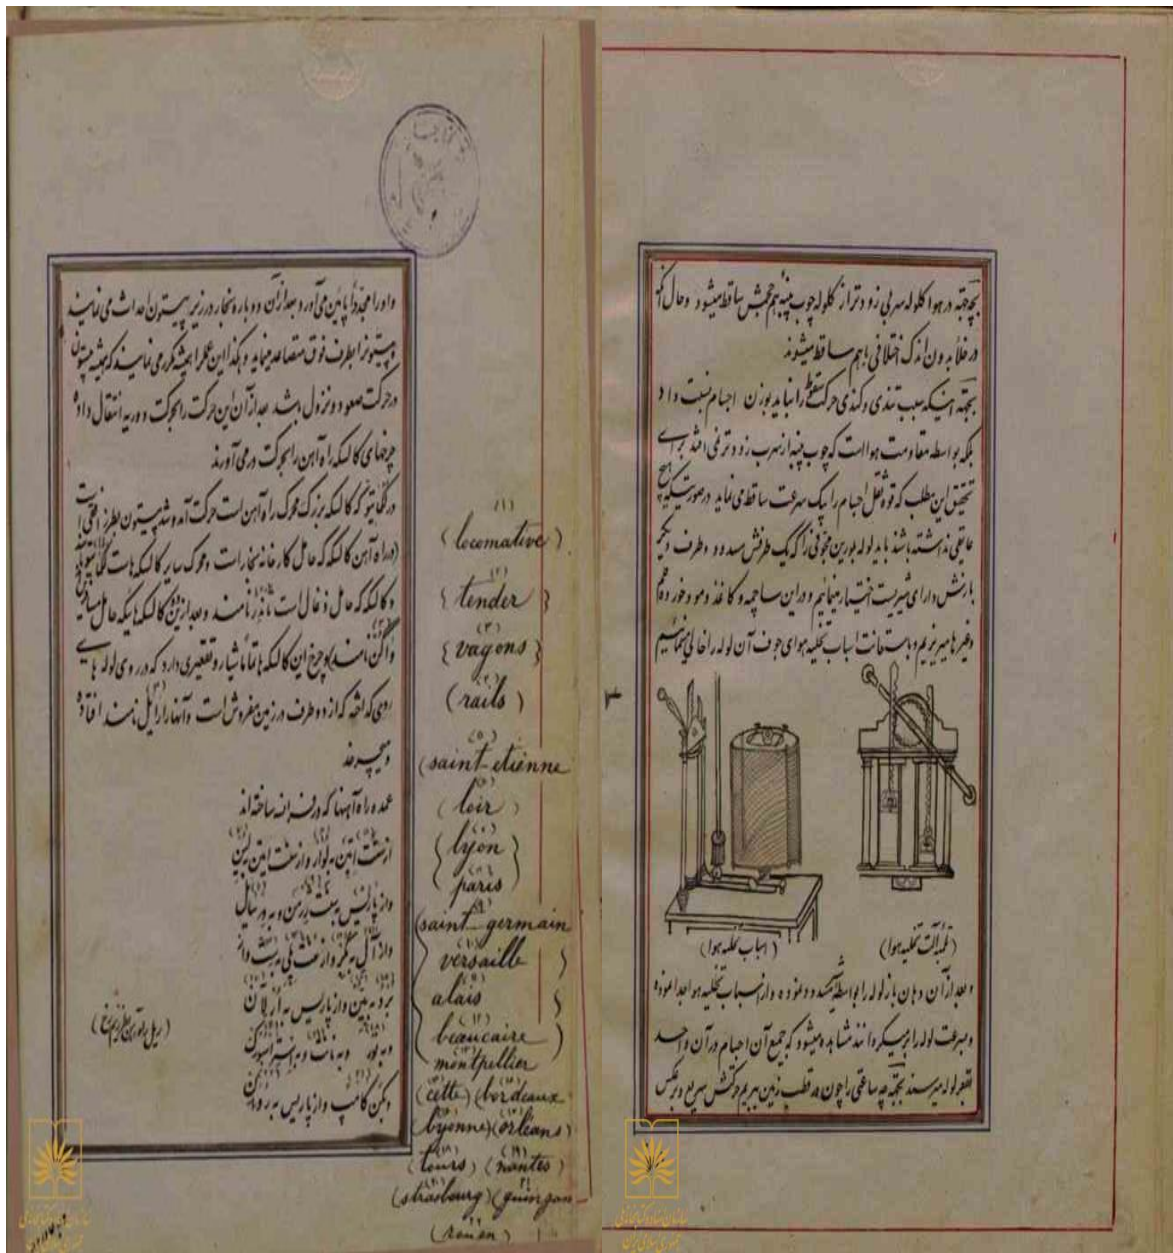 بچه جهة در هوا گلوله سربی زودتر از گلوله چوب پنبه هم حجمش ساقط میشود و حال آنکه
در خلأ بدون اندک اختلافی باهم ساقط میشوند
بجهة اینکه سبب تندی و کندی حرکت سقط را نباید بوزن اجسام نسبت داد
بلکه بواسطه مقاومت هوا است که چوب پنبه از سرب زودتر نمی افتد برای
تحقیق این مطلب که قوه ثقل اجسام را بیک سرعت ساقط می نماید در صورتیکه هیچ
عایقی نداشته باشد باید لوله بلورین مجوفی را که یک طرفش مسدود و طرف دیگر
بازش دارای شیریست اختیار مینمائیم و در این ساچمه و کاغذ و مو و خورده
و غیرها میریزیم و باستعانت اسباب تخلیه هوای جوف آن لوله را خالی مینمائیم
(تلمبه آلت تخلیه هوا)
(اسباب تخلیه هوا)
و بعد از آن دهان باز لوله را بواسطه مسدود نموده و از اسباب تخلیه هوا جدا نموده
و بسرعت لوله را برمیگردانند مشاهده میشود که جمیع آن اجسام در آن واحد
بقعر لوله میرسند بجهة چه ساعتی را چون در قطب زمین ببریم حرکتش سریع و برعکس
و او را مجدداً پایین می آورد و بعد از آن دوباره بخار در زیر پیستون احداث می نمایند
و پیستون را بطرف فوق متصاعد مینماید و هکذا این عمل را همیشه مکرر می نمایند که همیشه پیستون
در حرکت صعود و نزول باشد بعد از آن این حرکت را بحرکت دوریه انتقال داده
چرخهای کالسکه راه آهن را بحرکت در می آورند
در که کالسکه بزرگ محرک راه آهن است حرکت آمد و شد پیستون بطرز افقی است
(در راه آهن کالسکه که حامل کارخانه بخار است و محرک سایر کالسکه هاست
و کالسکه که حامل ذغال است تاندر نامند و بعد از این دو کالسکه هائیکه حامل
واگن نامند) و چرخ این کالسکه ها تماماً شیار و تقعیری دارد که در روی لوله های
روی که از دو طرف در زمین مفروش است و آنها را رایل نامند افتاده
و میچرخند
عمده راه آهنها که در فرانسه ساخته اند
از سنت اتین به لوار و از سنت اتین به لین
و از پاریس به سنت ژرمن و به ورسیال
و از آله به بکر و از منت پلیه به ست و از
برد به بین و از پاریس به ارلان
و به تور و به نانت و به استراسبورگ
و بگن کامپ و از پاریس به روان
(۱)
(locomative)
(۲)
{tender}
(۳)
{vagons}
(۴)
(rails)
(۵)
(saint-etienne
(۶)
(loir)
(۷)
{lyon}
(۸)
{paris}
(۹)
(saint-germain
(۱۰)
versaille
(۱۱)
alais
(۱۲)
beaucaire
(۱۳)
montpellier
(۱۴) (۱۵)
(cette) (bordeaux
(۱۶) (۱۷)
(byonne) (orleans)
(۱۸) (۱۹)
(tours) (nantes)
(۲۰) (۲۱)
(strasbourg) (guingan
(۲۲)
(rouen)